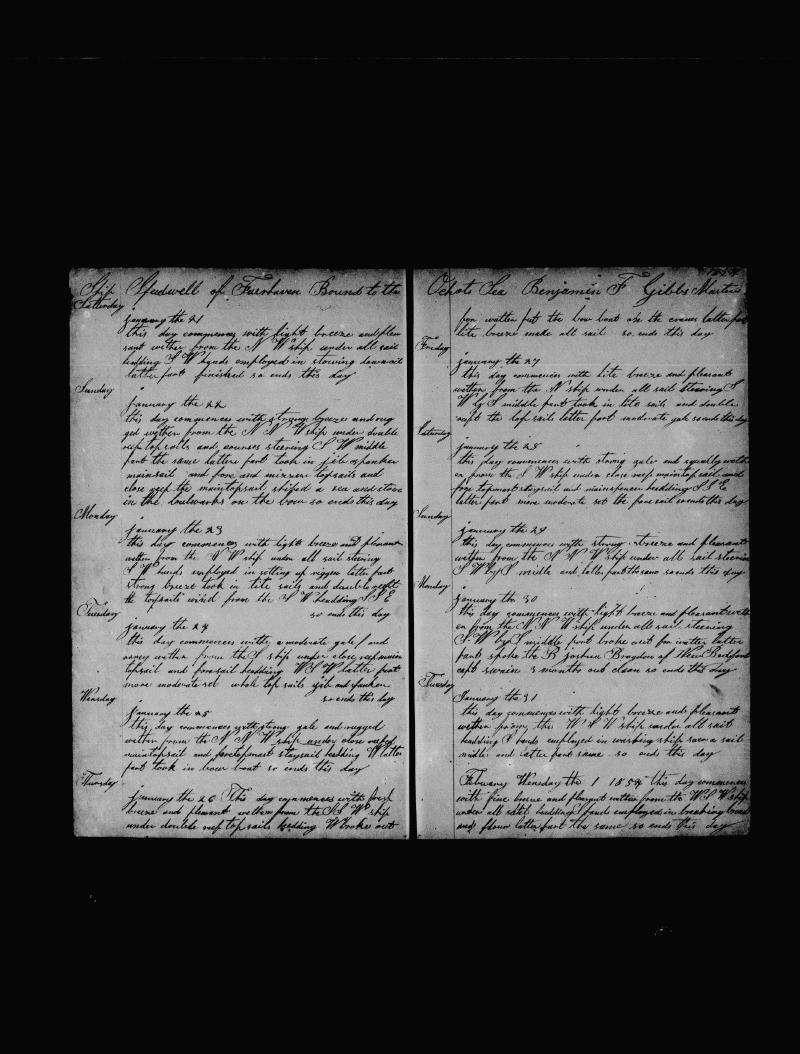 Ship Speedwell of Fairhaven Bound to the
Satturday
january the 21
this day commences with light breeze and plea
sant wether from the N W ship under all sail
heading S W hands employed in stowing down oil
latter part finished so ends this day
Sunday
january the 22
this day commences with strong breeze and rug
ged wether from the N N W ship under double
reep topsails and courses steering S W middle
part the same lattere part took in jib spanker
mainsail and fore and mizzen topsails and
close reep the maintopsail shiped a sea and stove
in the boulwarks on the bow so ends this day
Monday
january the 23
this day commences with light breeze and pleasant
wether from the N W ship under all sail steering
S W hands employed in setting up riggen latter part
strong breeze took in lite sails and double reept
the topsails wind from the S W heading S S E
so ends this day
Tuesday
january the 24
this day commences with a moderate gale and
wether from the S ship under close reep main
topsail and foresail heading W S W latter part
more moderate set whole top sails jib and spanker
so ends this day
Wensday
january the 25
this day commences with strong gale and rugged
wether from the N N W ship under close reeped
maintopsail and foretopmast staysail heading W latter
part took in bow boat so ends this day
january the 26 This day commences with fresh
breeze and pleasant wether from the S S W ship
under double reep topsails heading W broke out
1854
Ochots Sea Benjamin F Gibbs Master
for watter put the bow boat on the cranes latter part
lite breeze make all sail so ends this day
Friday
january the 27
this day commences with lite breeze and pleasant
wether from the N ship under all sail steering S
W by S middle part took in lite sails and double
reept the top sails latter part moderate gale so ends this day
Satturday
january the 28
this day commences with strong gale and squally weth
er from the S W ship under close reep maintopsail and
fore topmast staysail and mainspencer heading S S E
latter part more moderate set the foresail so ends this day
Sunday
january the 29
this day commences with strong breeze and pleasant
wether from the N N W ship under all sail steering
S W by S midle and latter part the same so ends this day
Monday
january the 30
this day commences with light breeze and pleasant weth
er from the N N W ship under all sail steering
S W by S middle part broke out for watter latter
part spoke the B joshua Bragdon of New Bedford
capt swain 3 months out clean so ends this day
Tuesday
January the 31
this day commences with light breeze and pleasant
wether from the W S W ship under all sail
heading S hands employed in working ship saw a sail
midle and latter part same so ends this day
Febuary Wensday the 1 1854 this day commences
with fine breeze and pleasant wether from the W S W ship
under all sail heading S hands employed in breaking bread
and flour latter part the same so ends this day